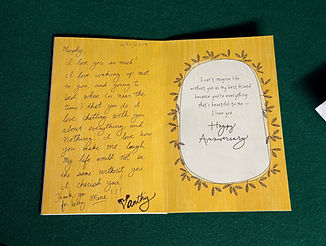 Murphy,
I love you so much!
I love waking up next
to you and going to
bed when (or near the
time) that you do. I
love chatting with you
about everything and
nothing. I love how
you make me laugh.
My life would not be
the same without you.
I cherish you.
Thank you
for being Mine!!!
I can't imagine life
without you as my best friend
because you're everything
that's beautiful to me —
I love you.
Happy
Anniversary